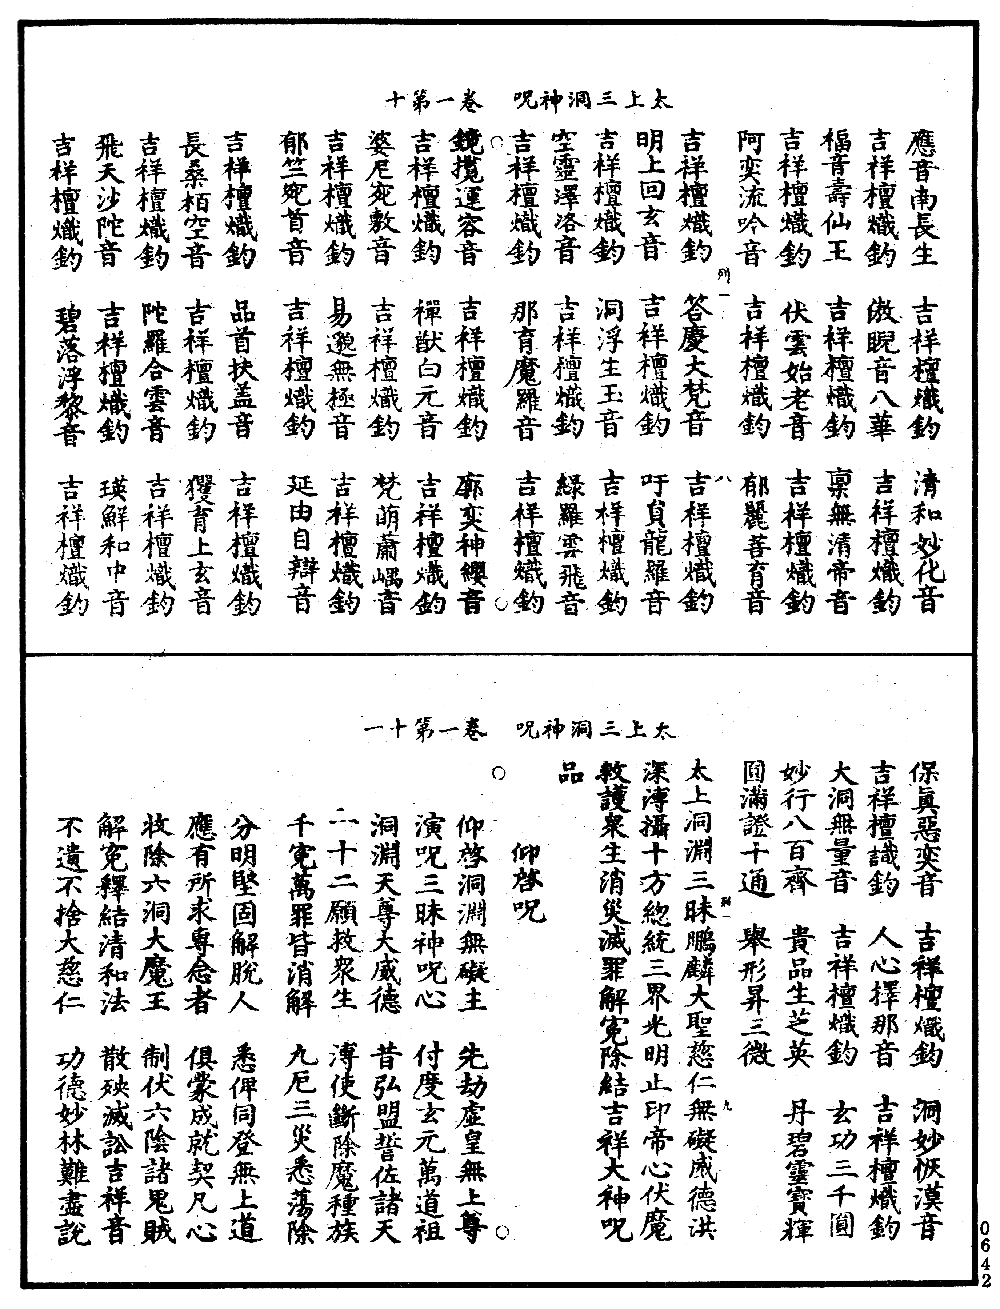 太上三洞神呪　卷一第十
應音南長生　吉祥檀熾鈞　清和妙化音
吉祥檀熾鈞　傲睨音八華　吉祥檀熾鈞
福音壽仙王　吉祥檀熾鈞　稟無清帝音
吉祥檀熾鈞　伏雲始老音　吉祥檀熾鈞
阿奕流吟音　吉祥檀熾鈞　郁麗菩育音
吉祥檀熾鈞　答慶大梵音　吉祥檀熾鈞
明上回玄音　吉祥檀熾鈞　吁員龍羅音
吉祥檀熾鈞　洞浮生玉音　吉祥檀熾鈞
空靈澤洛音　吉祥檀熾鈞　綠羅雲飛音
吉祥檀熾鈞　那育魔羅音　吉祥檀熾鈞
鏡攬運容音　吉祥檀熾鈞　廓奕神纓音
吉祥檀熾鈞　禪猷白元音　吉祥檀熾鈞
婆尼宛敷音　吉祥檀熾鈞　梵萌蕭嵎音
吉祥檀熾鈞　易邈無極音　吉祥檀熾鈞
郁竺宛首音　吉祥檀熾鈞　延由自辯音
吉祥檀熾鈞　品首扶蓋音　吉祥檀熾鈞
長桑栢空音　吉祥檀熾鈞　玃育上玄音
吉祥檀熾鈞　陀羅合雲音　吉祥檀熾鈞
飛天沙陀音　吉祥檀熾鈞　瑛鮮和中音
吉祥檀熾鈞　碧落浮黎音　吉祥檀熾鈞
列一　八
太上三洞神呪　卷一第十一
保眞惡奕音　吉祥檀熾鈞　洞妙恢漠音
吉祥檀識鈞　人心擇那音　吉祥檀熾鈞
大洞無量音　吉祥檀熾鈞　玄功三千圓
妙行八百齊　貴品生芝英　丹碧靈寶輝
圓滿證十通　舉形昇三微
太上洞淵三昧鵬麟大聖慈仁無礙威德洪
深溥攝十方緫統三界光明止印帝心伏魔
救護衆生消災滅罪解寃除結吉祥大神呪
品
仰啓呪
仰啓洞淵無礙主　先劫虛皇無上尊
演呪三昧神呪心　付度玄元萬道祖
洞淵天尊大威德　昔弘盟誓佐諸天
二十二願救衆生　溥使斷除魔種族
千寃萬罪皆消解　九厄三災悉蕩除
分明堅固解脫人　悉俾同登無上道
應有所求專念者　俱蒙成就契凡心
收除六洞大魔王　制伏六陰諸鬼賊
解寃釋結清和法　散殃滅訟吉祥音
不遺不捨大慈仁　功德妙林難盡說
列一　九
0642